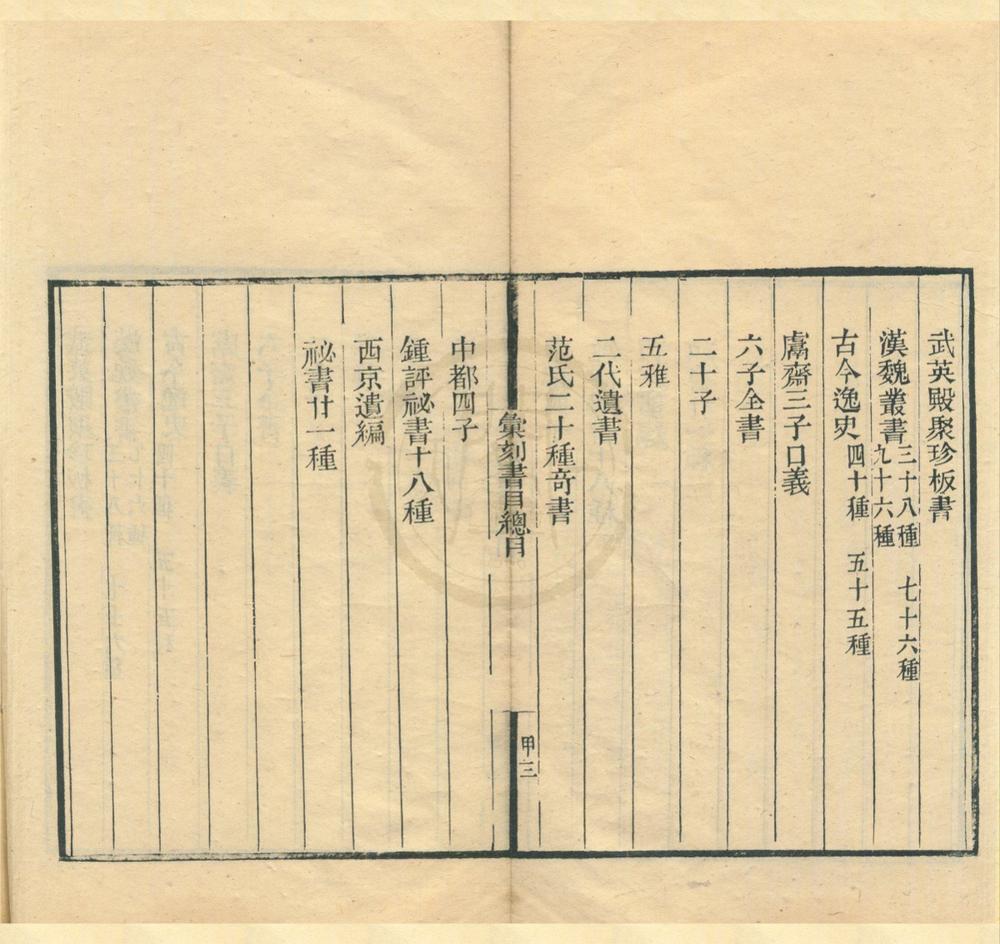 武英殿聚珍板書
漢魏叢書 三十八種 七十六種 九十六種
古今逸史 四十種 五十五種
鬳齋三子口義
六子全書
二十子
五雅
二代遺書
范氏二十種奇書
彙刻書目總目
甲三
中都四子
鍾評祕書十八種
西京遺編
祕書廿一種